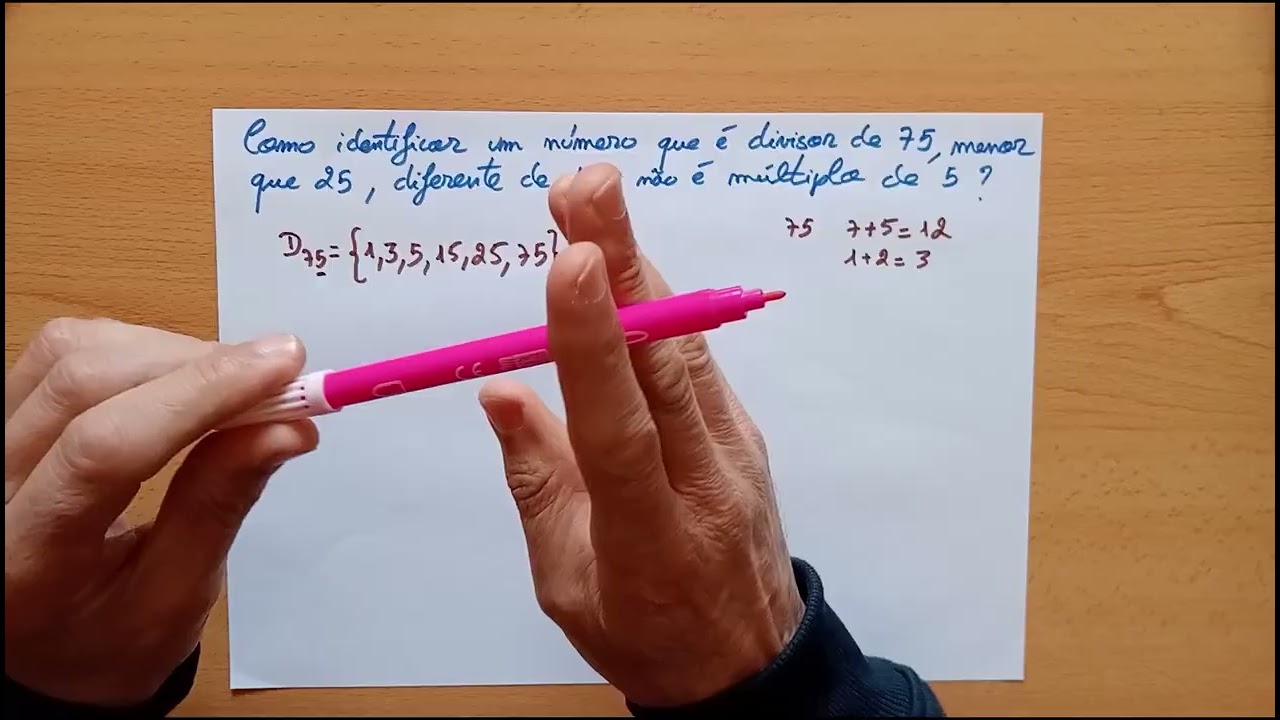 Como identificar um número que é divisor de 75, menor
que 25, diferente de não é múltiplo de 5 ?
D75 = {1,3,5,15,25,75}
75 7+5=12
1+2=3
CE